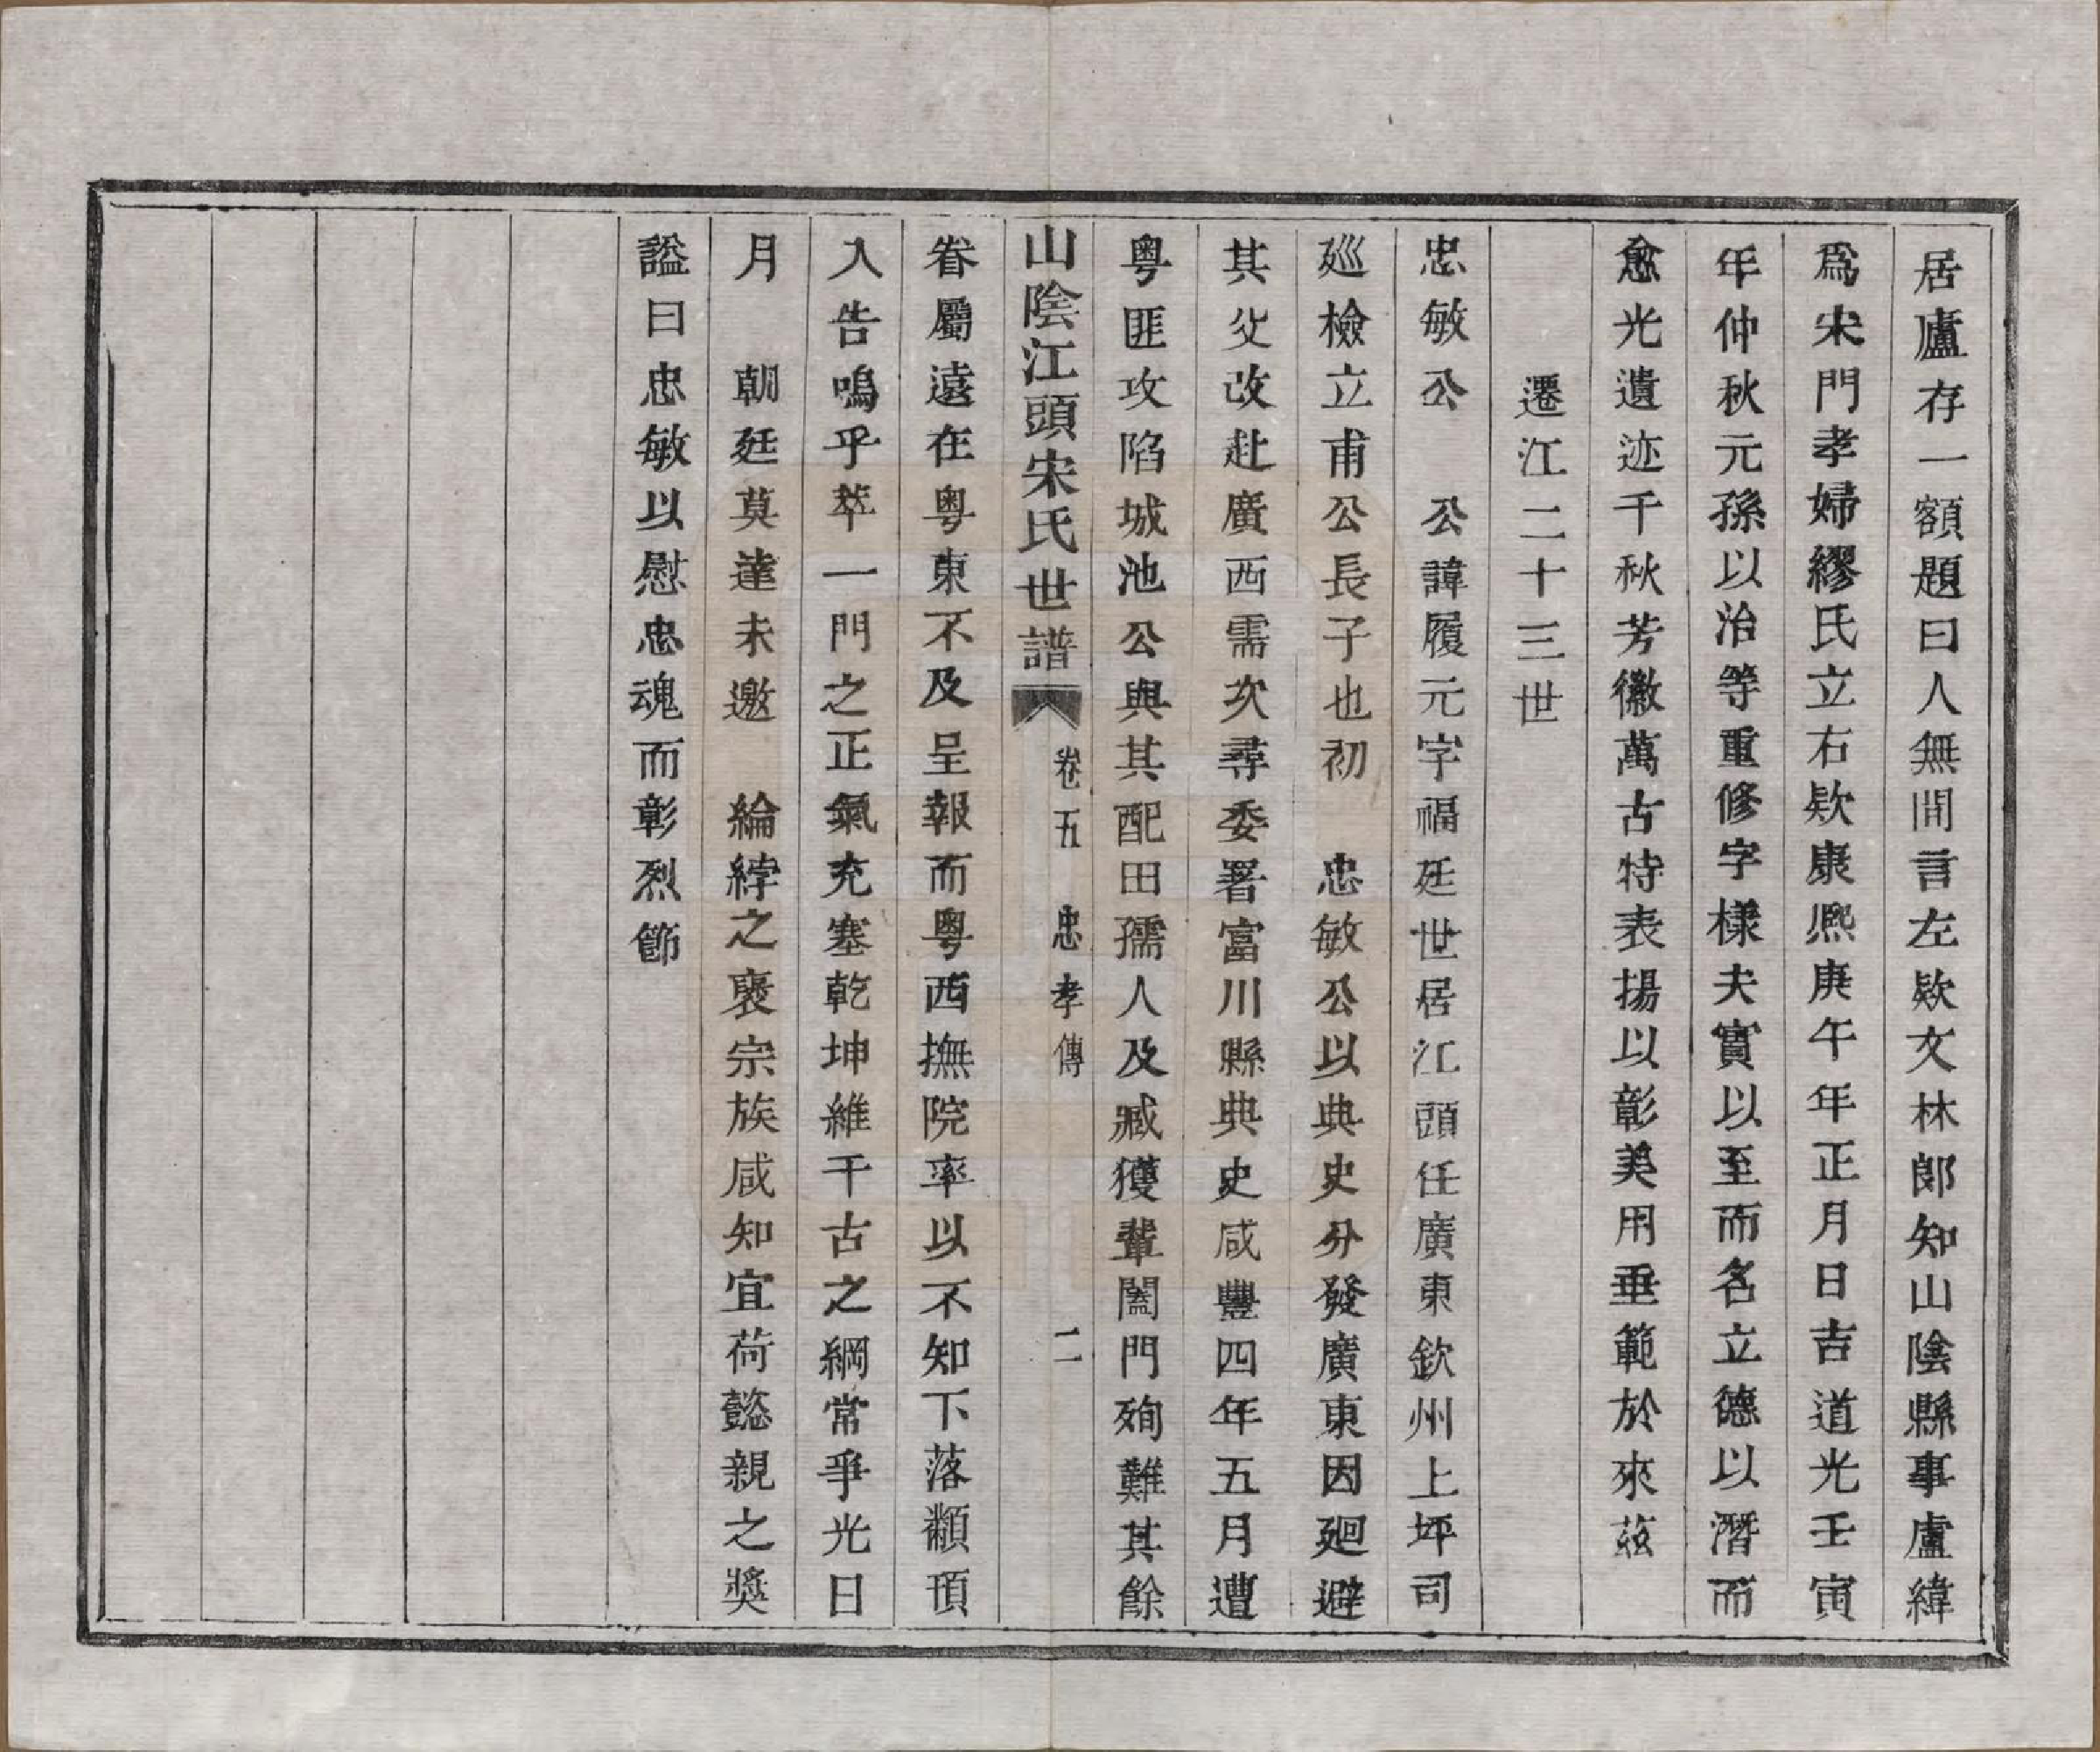 居廬存一額題曰人無間言左欵文林郎知山陰縣事盧緯
爲宋門孝婦繆氏立右欵康熙庚午年正月日吉道光壬寅
年仲秋元孫以治等重修字樣夫實以至而名立德以潛而
愈光遺迹千秋芳徽萬古特表揚以彰美用垂範於來茲
遷江二十三世
忠敏公　公諱履元字福廷世居江頭任廣東欽州上坪司
廵檢立甫公長子也初　忠敏公以典史分發廣東因廻避
其父改赴廣西需次尋委署富川縣典史咸豐四年五月遭
粵匪攻陷城池公與其配田孺人及臧獲輩闔門殉難其餘
山陰江頭宋氏世譜　卷五　忠孝傳　二
眷屬遠在粵東不及呈報而粵西撫院率以不知下落顢頇
入告嗚乎萃一門之正氣充塞乾坤維千古之綱常爭光日
月　朝廷莫達未邀　綸綍之褒宗族咸知宜荷懿親之獎
謚曰忠敏以慰忠魂而彰烈節